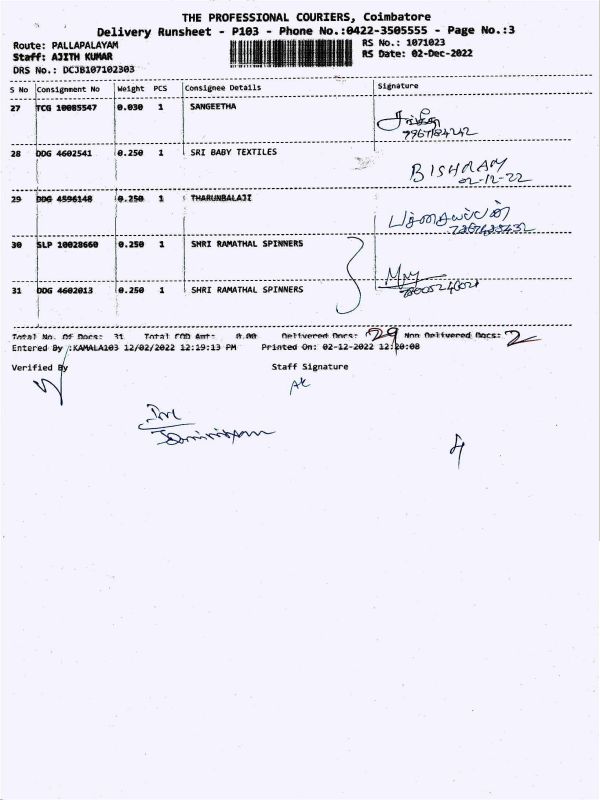 THE PROFESSIONAL COURIERS, Coimbatore
Delivery Runsheet - P103 - Phone No.:0422-3505555 - Page No.:3
Route: PALLAPALAYAM RS No.: 1071023
Staff: AJITH KUMAR RS Date: 02-Dec-2022
DRS No.: DCJB107102303
S No Consignment No Weight PCS Consignee Details Signature
27 TCG 10085547 0.030 1 SANGEETHA
28 DDG 4602541 0.250 1 SRI BABY TEXTILES BISHRAM
02-12-22
29 DDG 4596148 0.250 1 THARUNBALAJI
30 SLP 10028660 0.250 1 SHRI RAMATHAL SPINNERS
31 DDG 4602013 0.250 1 SHRI RAMATHAL SPINNERS
Total No. Of Docs: 31 Total COD Amt: 0.00 Delivered Docs: 29 Non Delivered Docs: 2
Entered By :KAMALA103 12/02/2022 12:19:13 PM Printed On: 02-12-2022 12:20:08
Verified By Staff Signature